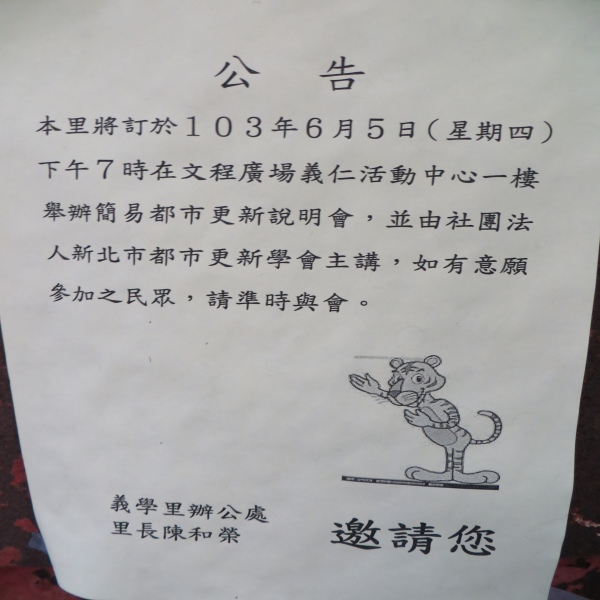 公告
本里將訂於１０３年６月５日（星期四）
下午７時在文程廣場義仁活動中心一樓
舉辦簡易都市更新說明會，並由社團法
人新北市都市更新學會主講，如有意願
參加之民眾，請準時與會。
義學里辦公處
里長陳和榮
邀請您